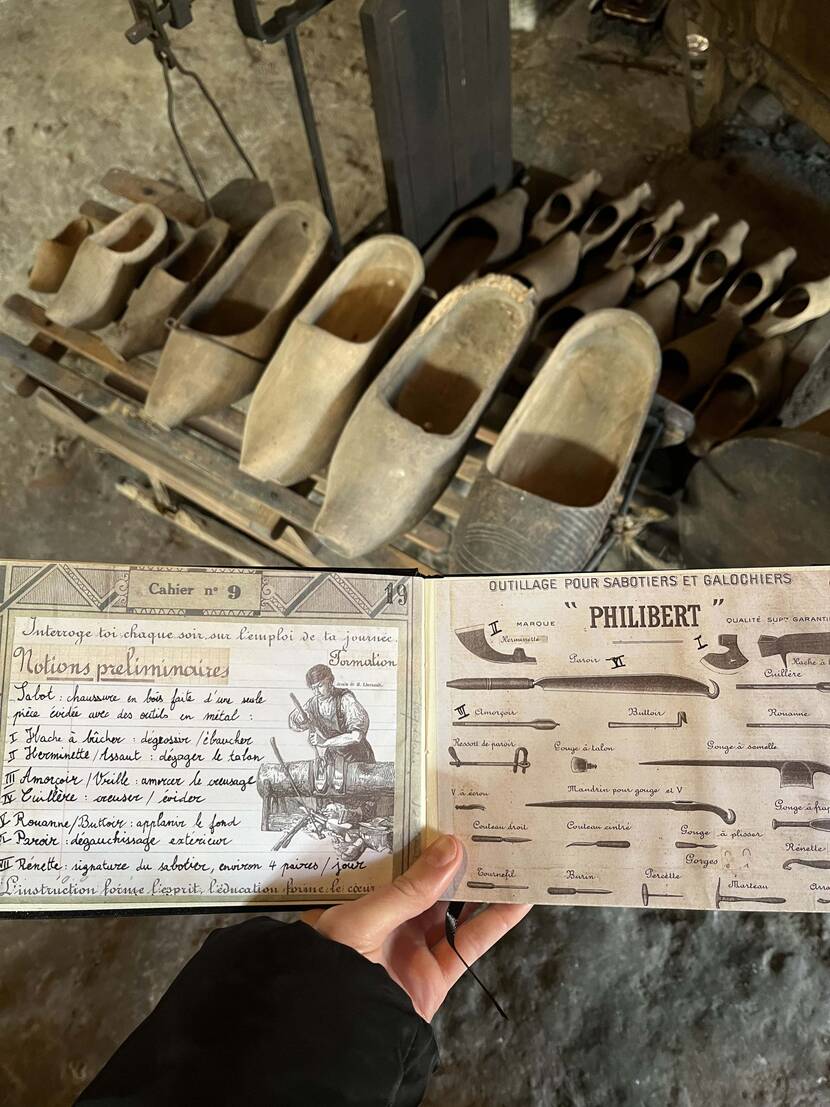 Cahier n° 9
19
Interroge toi chaque soir sur l'emploi de ta journée.
Notions preliminaires
Formation
Sabot : chaussure en bois faite d'une seule
pièce évidée avec des outils en métal :
I Hache à bûcher : dégrossir / ébaucher
II Herminette / Assaut : dégager le talon
III Amorçoir / Vrille : amorcer le creusage
IV Cuillère : creuser / évider
V Rouanne / Buttoir : applanir le fond
VI Paroir : dégauchissage extérieur
VII Rénette : signature du sabotier, environ 4 paires / jour
L'instruction forme l'esprit, l'éducation forme le cœur
OUTILLAGE POUR SABOTIERS ET GALOCHIERS
MARQUE " PHILIBERT " QUALITÉ SUPre GARANTI
II Herminette
I
Hache à
Paroir VI
Cuillère
III Amorçoir
Buttoir
Rouanne
Ressort de paroir
Gouge à talon
Gouge à semelle
V à écrou
Mandrin pour gouge et V
Gouge à
Couteau droit
Couteau cintré
Gouge à plisser
Gorges
Rénette
Tournefil
Burin
Percette
Marteau